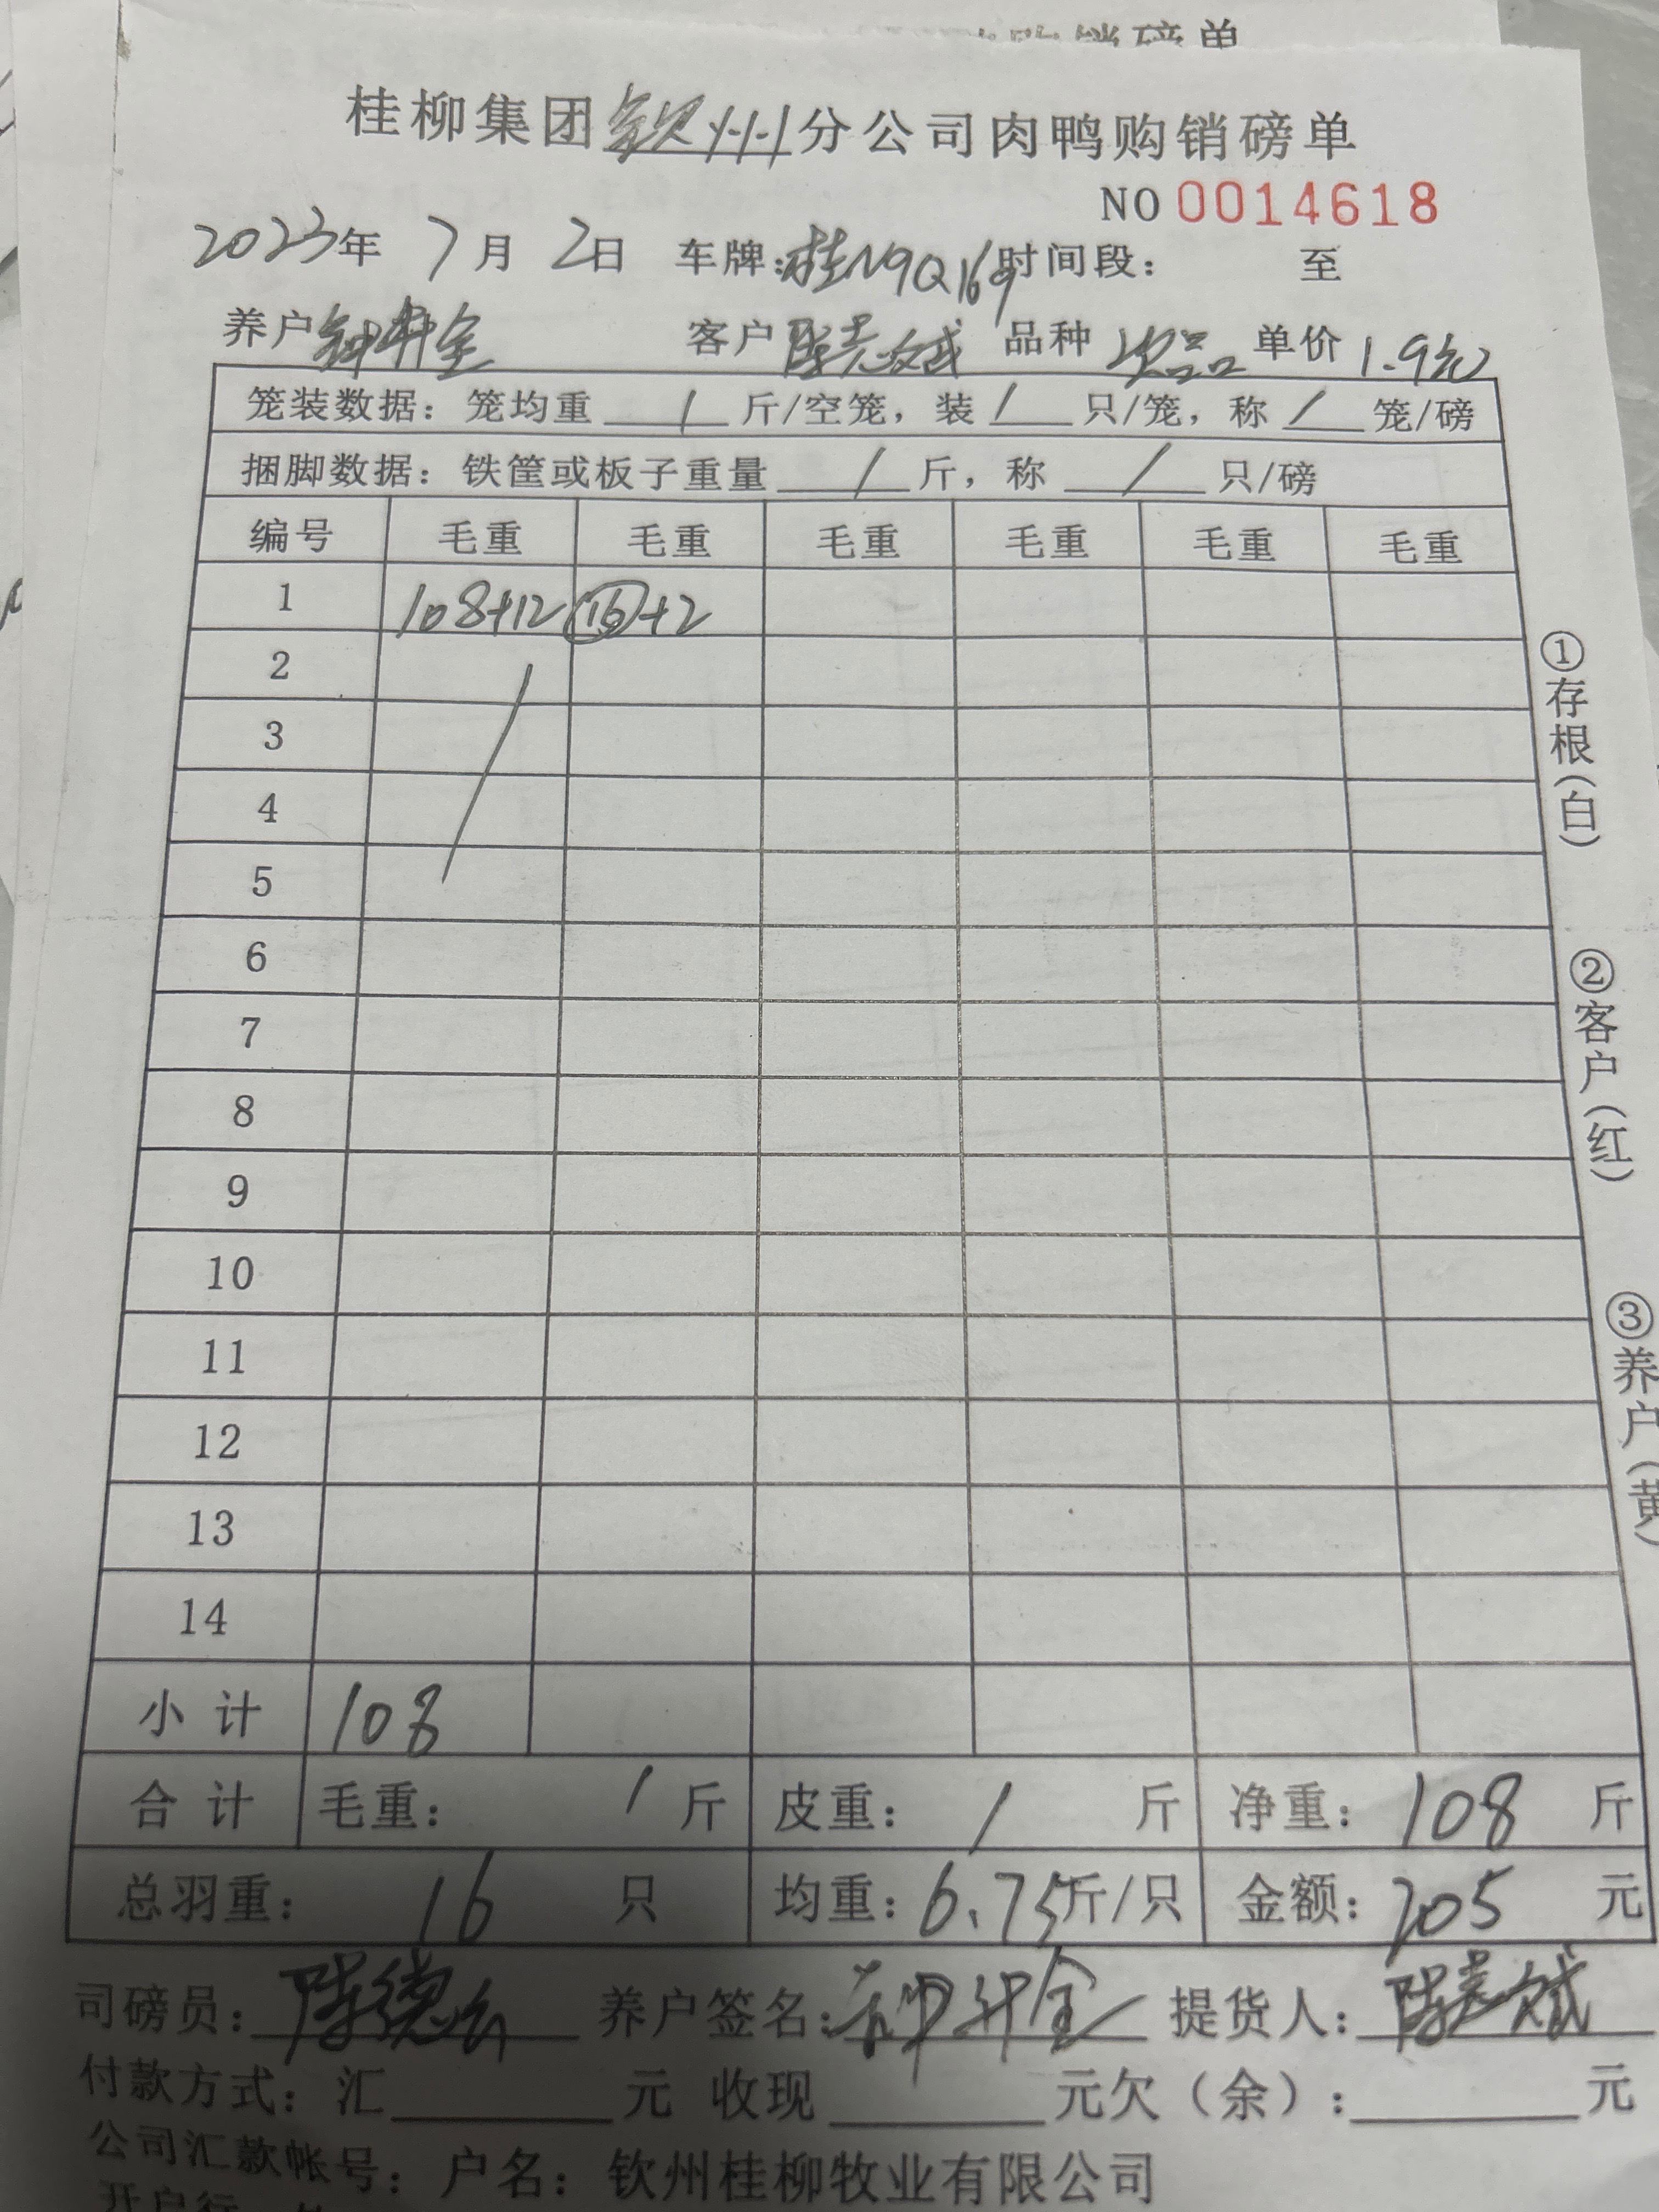 购销磅单
桂柳集团钦州分公司肉鸭购销磅单
NO 0014618
2023年 7月 2日 车牌:桂N9Q169 时间段: 至
养户 客户 陈志斌 品种 次品 单价 1.9元
笼装数据: 笼均重 / 斤/空笼, 装 / 只/笼, 称 / 笼/磅
捆脚数据: 铁筐或板子重量 / 斤, 称 / 只/磅
编号 毛重 毛重 毛重 毛重 毛重 毛重
1 108+12 16+2
2
3
4
5
6
7
8
9
10
11
12
13
14
小计 108
合计 毛重: / 斤 皮重: / 斤 净重: 108 斤
总羽重: 16 只 均重: 6.75斤/只 金额: 205 元
司磅员: 陈德 养户签名: 提货人: 陈志斌
付款方式: 汇 元 收现 元欠(余): 元
公司汇款帐号: 户名: 钦州桂柳牧业有限公司
开户行
①存根(白)
②客户(红)
③养户(黄)